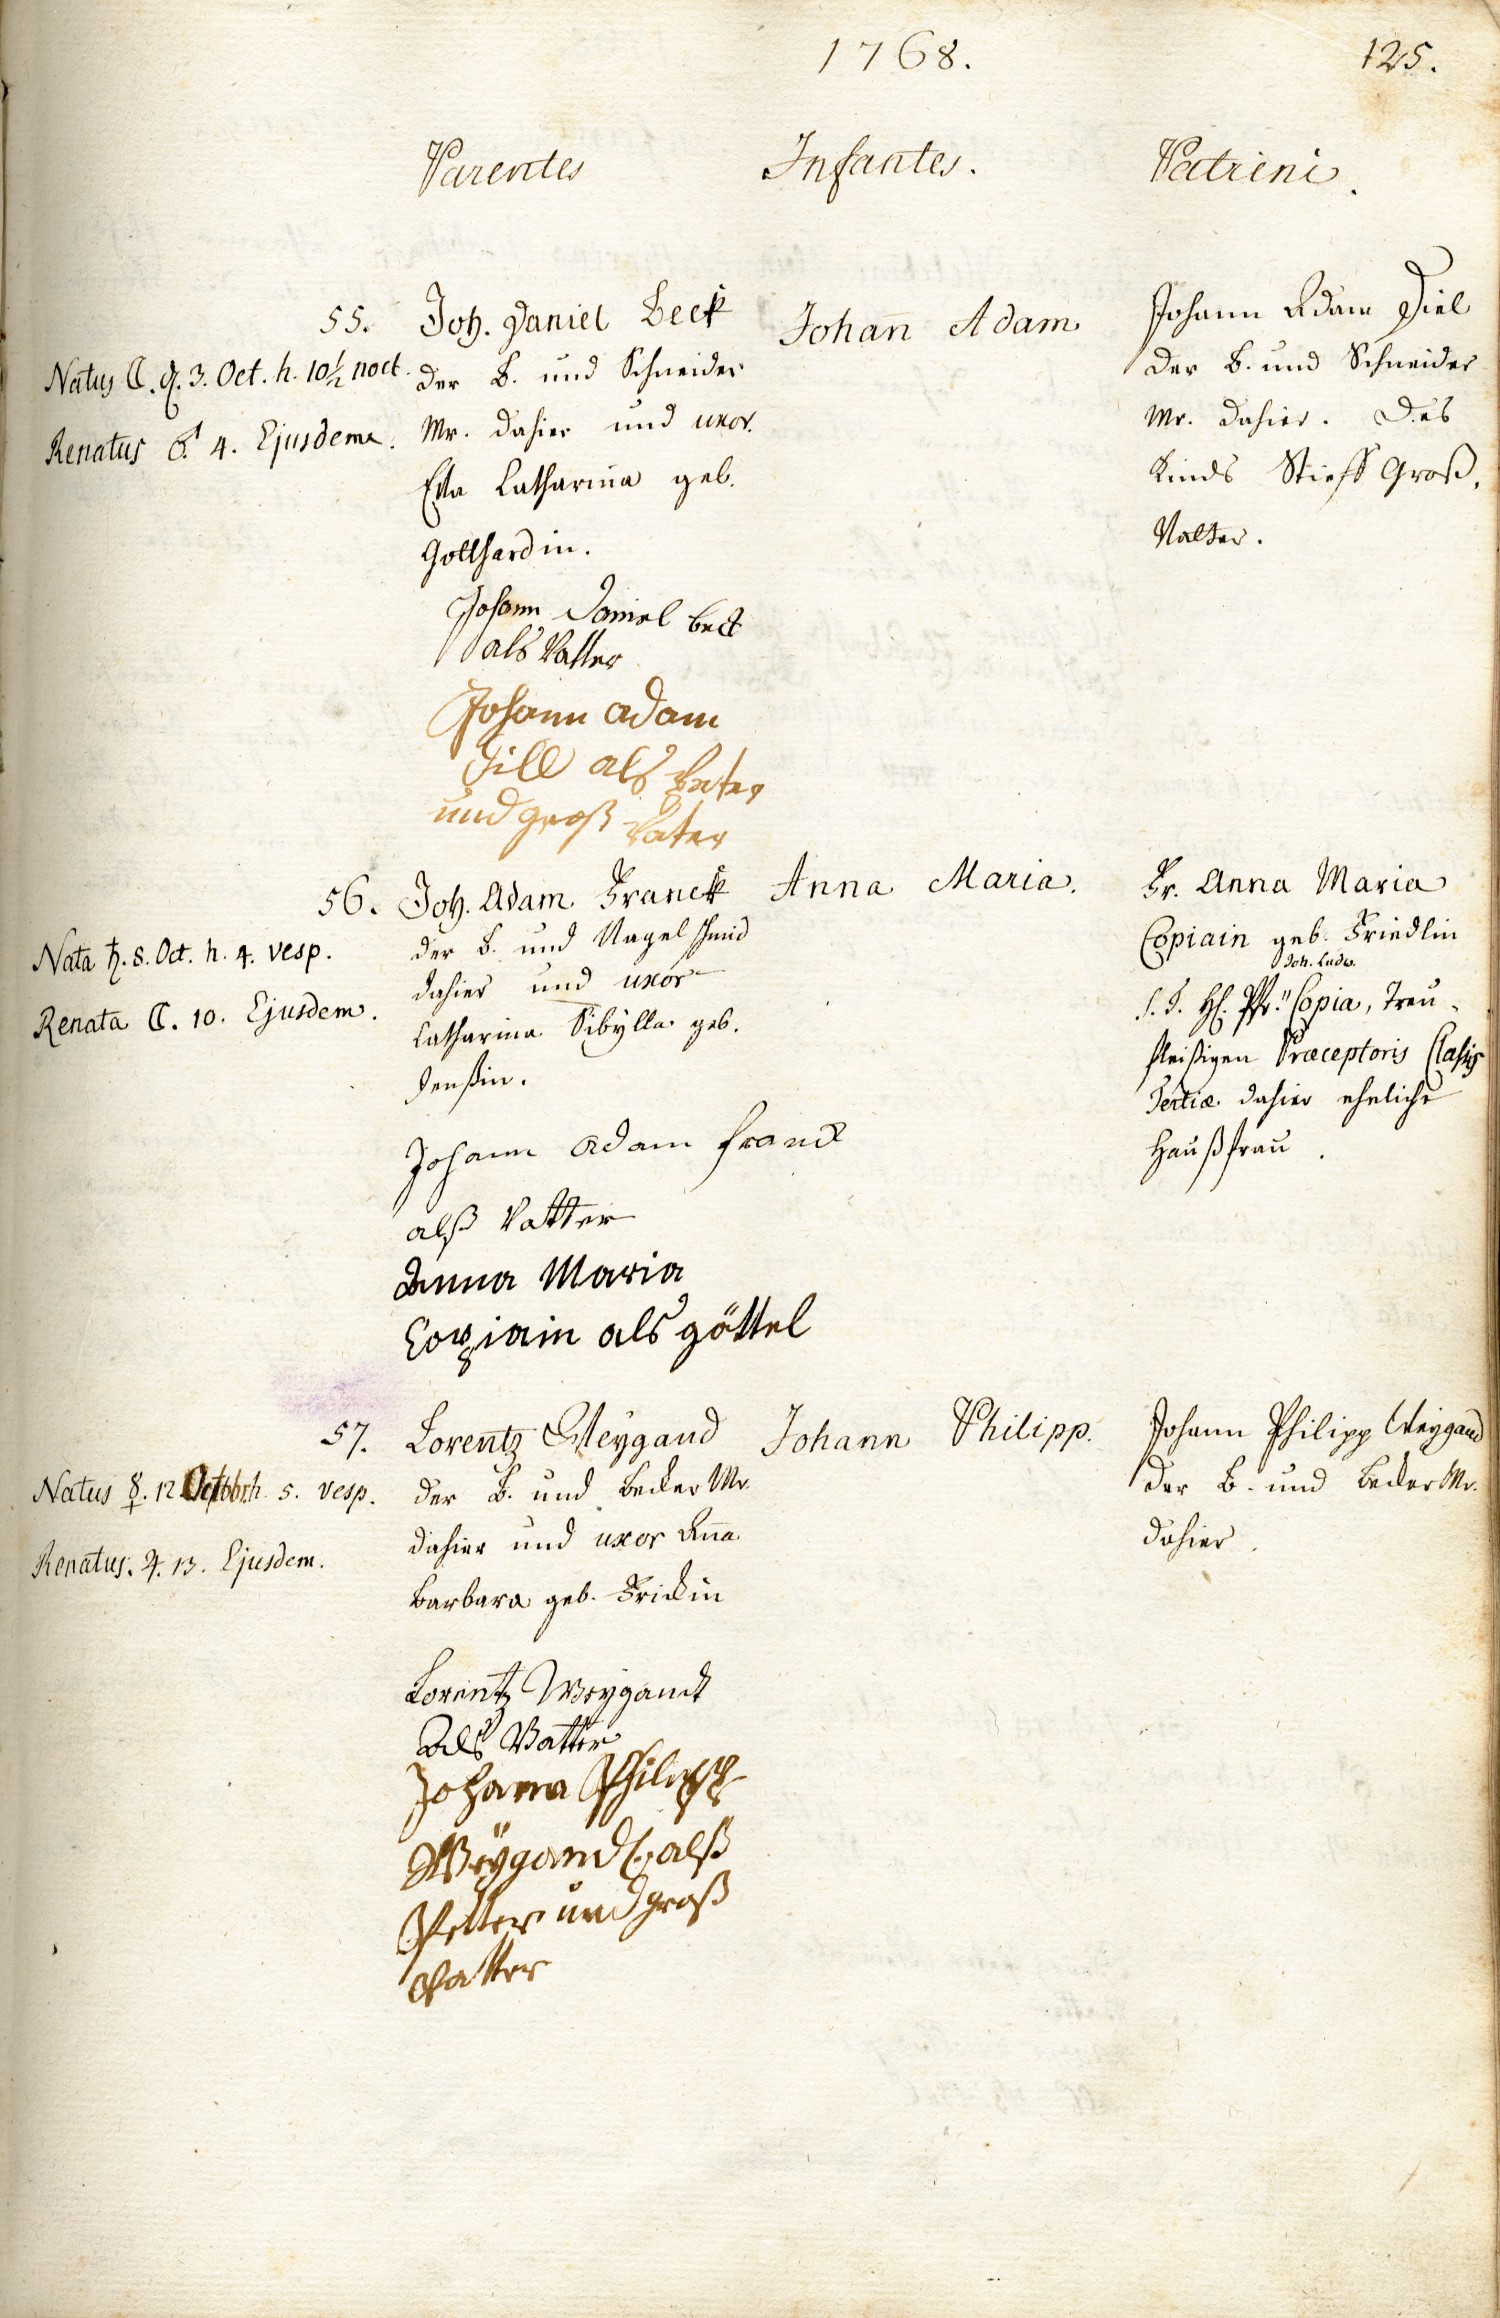 1768.
125.
Parentes
Infantes.
Patrini.
55.
Natus ☾. d. 3. Oct. h. 10½ noct.
Renatus ♂. 4. Ejusdem.
Joh. Daniel Beck
der B. und Schneider
Mr. dahier und uxor.
Eva Catharina geb.
Gotthardin.
Johann Daniel beck
als Vatter
Johann adam
Dill als
und groß Vater
Johan̅ Adam
Johann Adam Diel
der B. und Schneider
Mr. dahier. Des
Kinds Stieff Groß,
Vatter.
56.
Nata ♄. 8. Oct. h. 4. vesp.
Renata ☾. 10. Ejusdem.
Joh. Adam Franck
der B. und Nagelschmid
dahier und uxor
Catharina Sibylla geb.
Johann Adam franck
alß Vatter
Anna Maria
Copiain als göttel
Anna Maria.
Fr. Anna Maria
Copiain geb. Friedlin
Joh. Ludw.
Copia, Treu-
fleißigen Præceptoris Classis
Tertiæ dahier eheliche
Haußfrau.
57.
Natus ☿. 12 Octobr. h. 5. vesp.
Renatus. ♃. 13. Ejusdem.
Lorentz Weygand
der B. und Becker Mr.
dahier und uxor An̅a
Barbara geb. Frickin
Lorentz Weygandt
Als Vatter
Johann Philipp
Weÿgandt alß
Petter und groß
Vatter
Johann Philipp.
Johann Philipp Weygand
der B. und Becker Mr.
dahier.